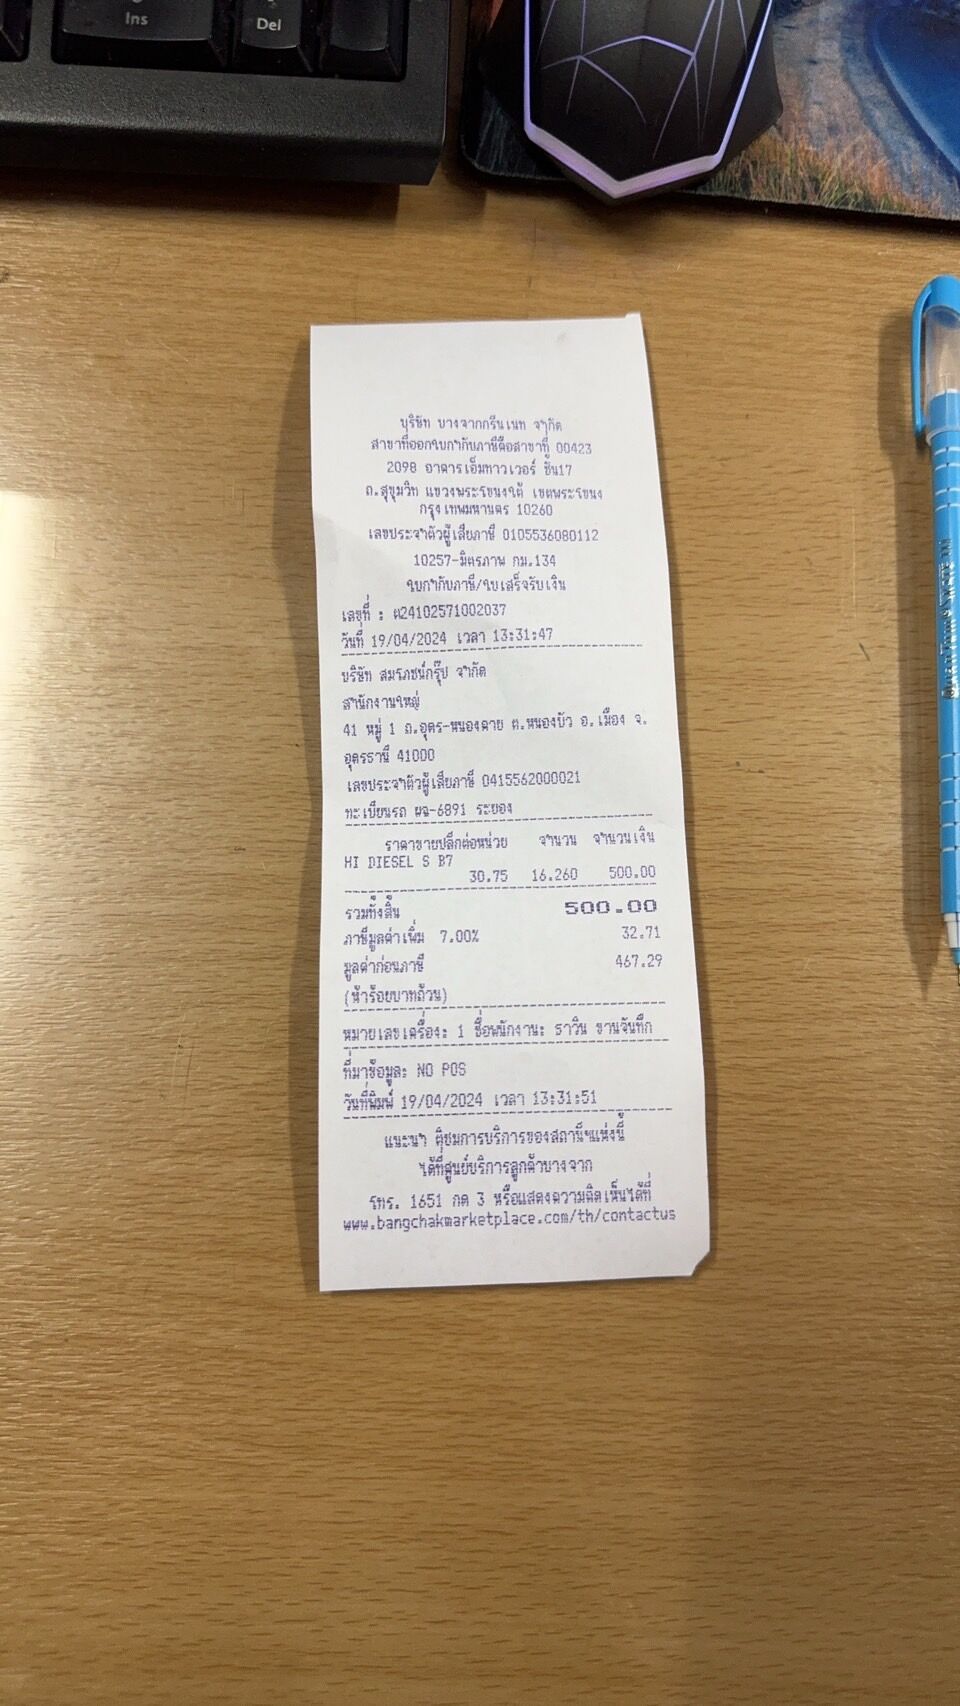 Ins
Del
บริษัท บางจากกรีนเนท จำกัด
สาขาที่ออกใบกำกับภาษีคือสาขาที่ 00423
2098 อาคารเอ็มทาวเวอร์ ชั้น17
ถ.สุขุมวิท แขวงพระโขนงใต้ เขตพระโขนง
กรุงเทพมหานคร 10260
เลขประจำตัวผู้เสียภาษี 0105536080112
10257-มิตรภาพ กม.134
ใบกำกับภาษี/ใบเสร็จรับเงิน
เลขที่ : ต24102571002037
วันที่ 19/04/2024 เวลา 13:31:47
บริษัท สมโภชน์กรุ๊ป จำกัด
สำนักงานใหญ่
41 หมู่ 1 ถ.อุดร-หนองคาย ต.หนองบัว อ.เมือง จ.
อุดรธานี 41000
เลขประจำตัวผู้เสียภาษี 0415562000021
ทะเบียนรถ ผฉ-6891 ระยอง
ราคาขายปลีกต่อหน่วย จำนวน จำนวนเงิน
HI DIESEL S B7
30.75 16.260 500.00
รวมทั้งสิ้น 500.00
ภาษีมูลค่าเพิ่ม 7.00% 32.71
มูลค่าก่อนภาษี 467.29
(ห้าร้อยบาทถ้วน)
หมายเลขเครื่อง: 1 ชื่อพนักงาน: ธาวิน ขานจันทึก
ที่มาข้อมูล: NO POS
วันที่พิมพ์ 19/04/2024 เวลา 13:31:51
แนะนำ ติชมการบริการของสถานีฯแห่งนี้
ได้ที่ศูนย์บริการลูกค้าบางจาก
โทร. 1651 กด 3 หรือแสดงความคิดเห็นได้ที่
www.bangchakmarketplace.com/th/contactus